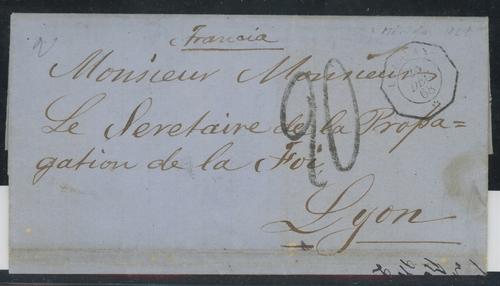 Francia
Monsieur Monsieur
Le Seretaire de la Propa=
gation de la Foi
Lyon
90
68